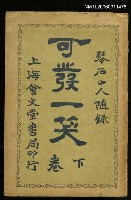 琴石山人隨錄
可發一笑
下卷
上海會文堂書局印行